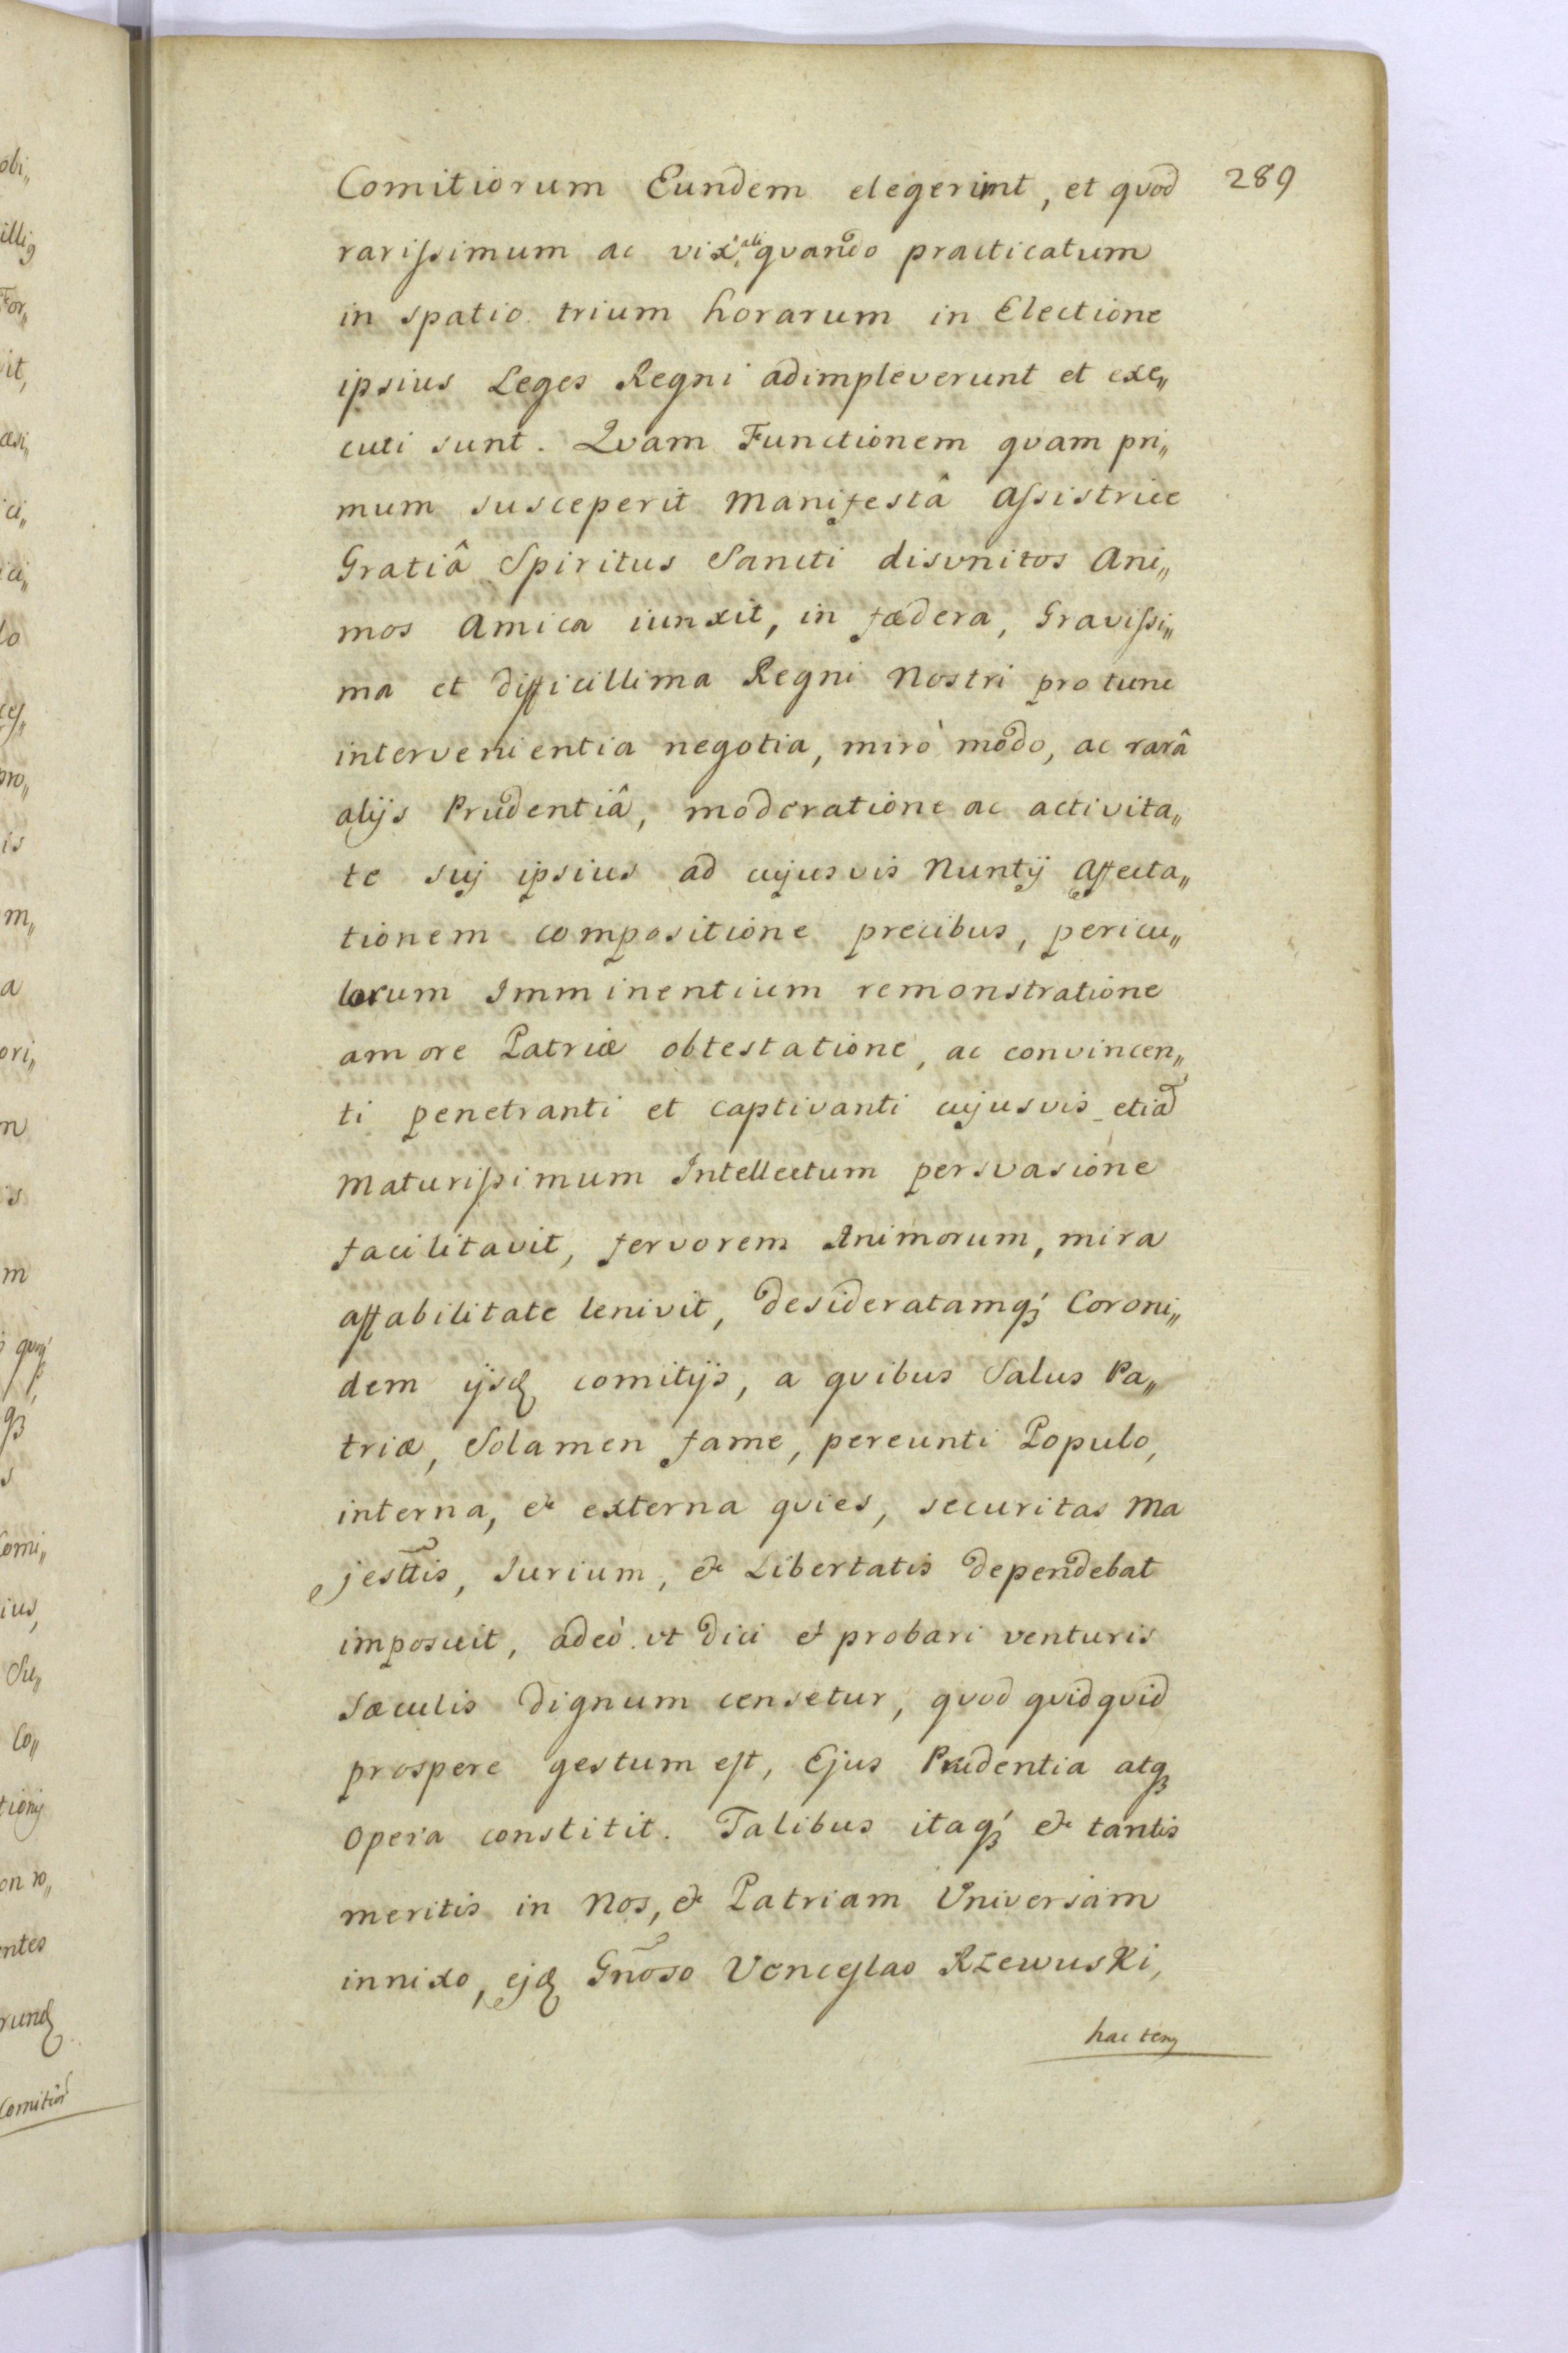 Comitiorum Eundem elegerint, et quod 289
rarissimum ac vix aliquando practicatum
in spatio trium horarum in Electione
ipsius Leges Regni adimpleverunt et exe„
cuti sunt. Quam Functionem quam pri„
mum susceperit Manifestâ Assistrice
Gratiâ Spiritus Sancti disunitos Ani„
mos Amica iunxit, in fædera, Gravissi„
ma et difficillima Regni Nostri pro tunc
intervenientia negotia, mirò modo, ac rarâ
alijs Prudentiâ, moderatione ac activita„
te suj ipsius ad cujusvis Nuntij Affecta„
tionem compositione precibus, pericu„
lorum Imminentium remonstratione
amore Patriæ obtestatione, ac convincen„
ti penetranti et captivanti cujusvis etiã
Maturissimum Intellectum persvasione
facilitavit, fervorem Animorum, mira
affabilitate lenivit, desideratamq́ꝫ Coroni„
dem ijsđ comitijs, a quibus Salus Pa„
triæ, Solamen fame, pereunti Populo,
interna, & externa quies, securitas Ma
jestt̃is, Jurium, & Libertatis dependebat
imposuit, adeò ut dici & probari venturis
Sæculis dignum censetur, quod quidquid
prospere gestum est, Ejus Prudentia atqꝫ
Opera constitit. Talibus itaq́ꝫ & tantis
meritis in Nos, & Patriam Universam
innixo, ejđ Gñoso Venceslao Rzewuski,
hac teny